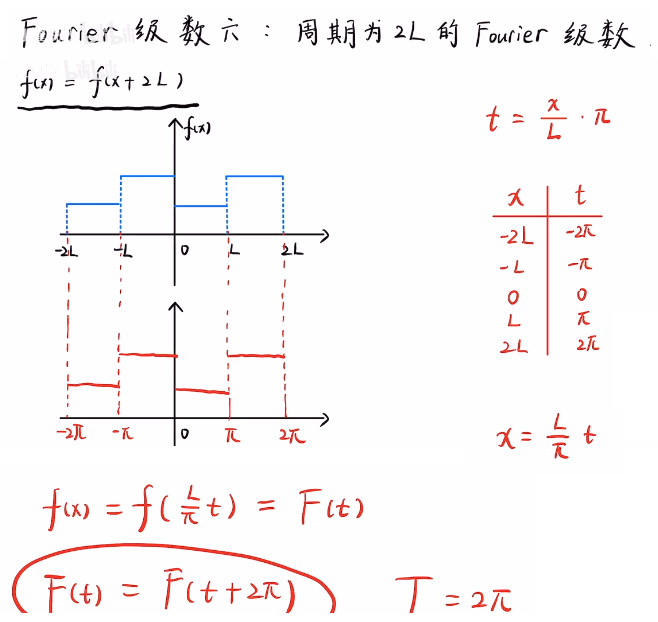 Fourier 级数六：周期为2L的 Fourier 级数
f(x) = f(x+2L)
f(x)
-2L -L 0 L 2L
-2π -π 0 π 2π
t = x/L · π
x t
-2L -2π
-L -π
0 0
L π
2L 2π
x = L/π t
f(x) = f(L/π t) = F(t)
F(t) = F(t+2π) T = 2π